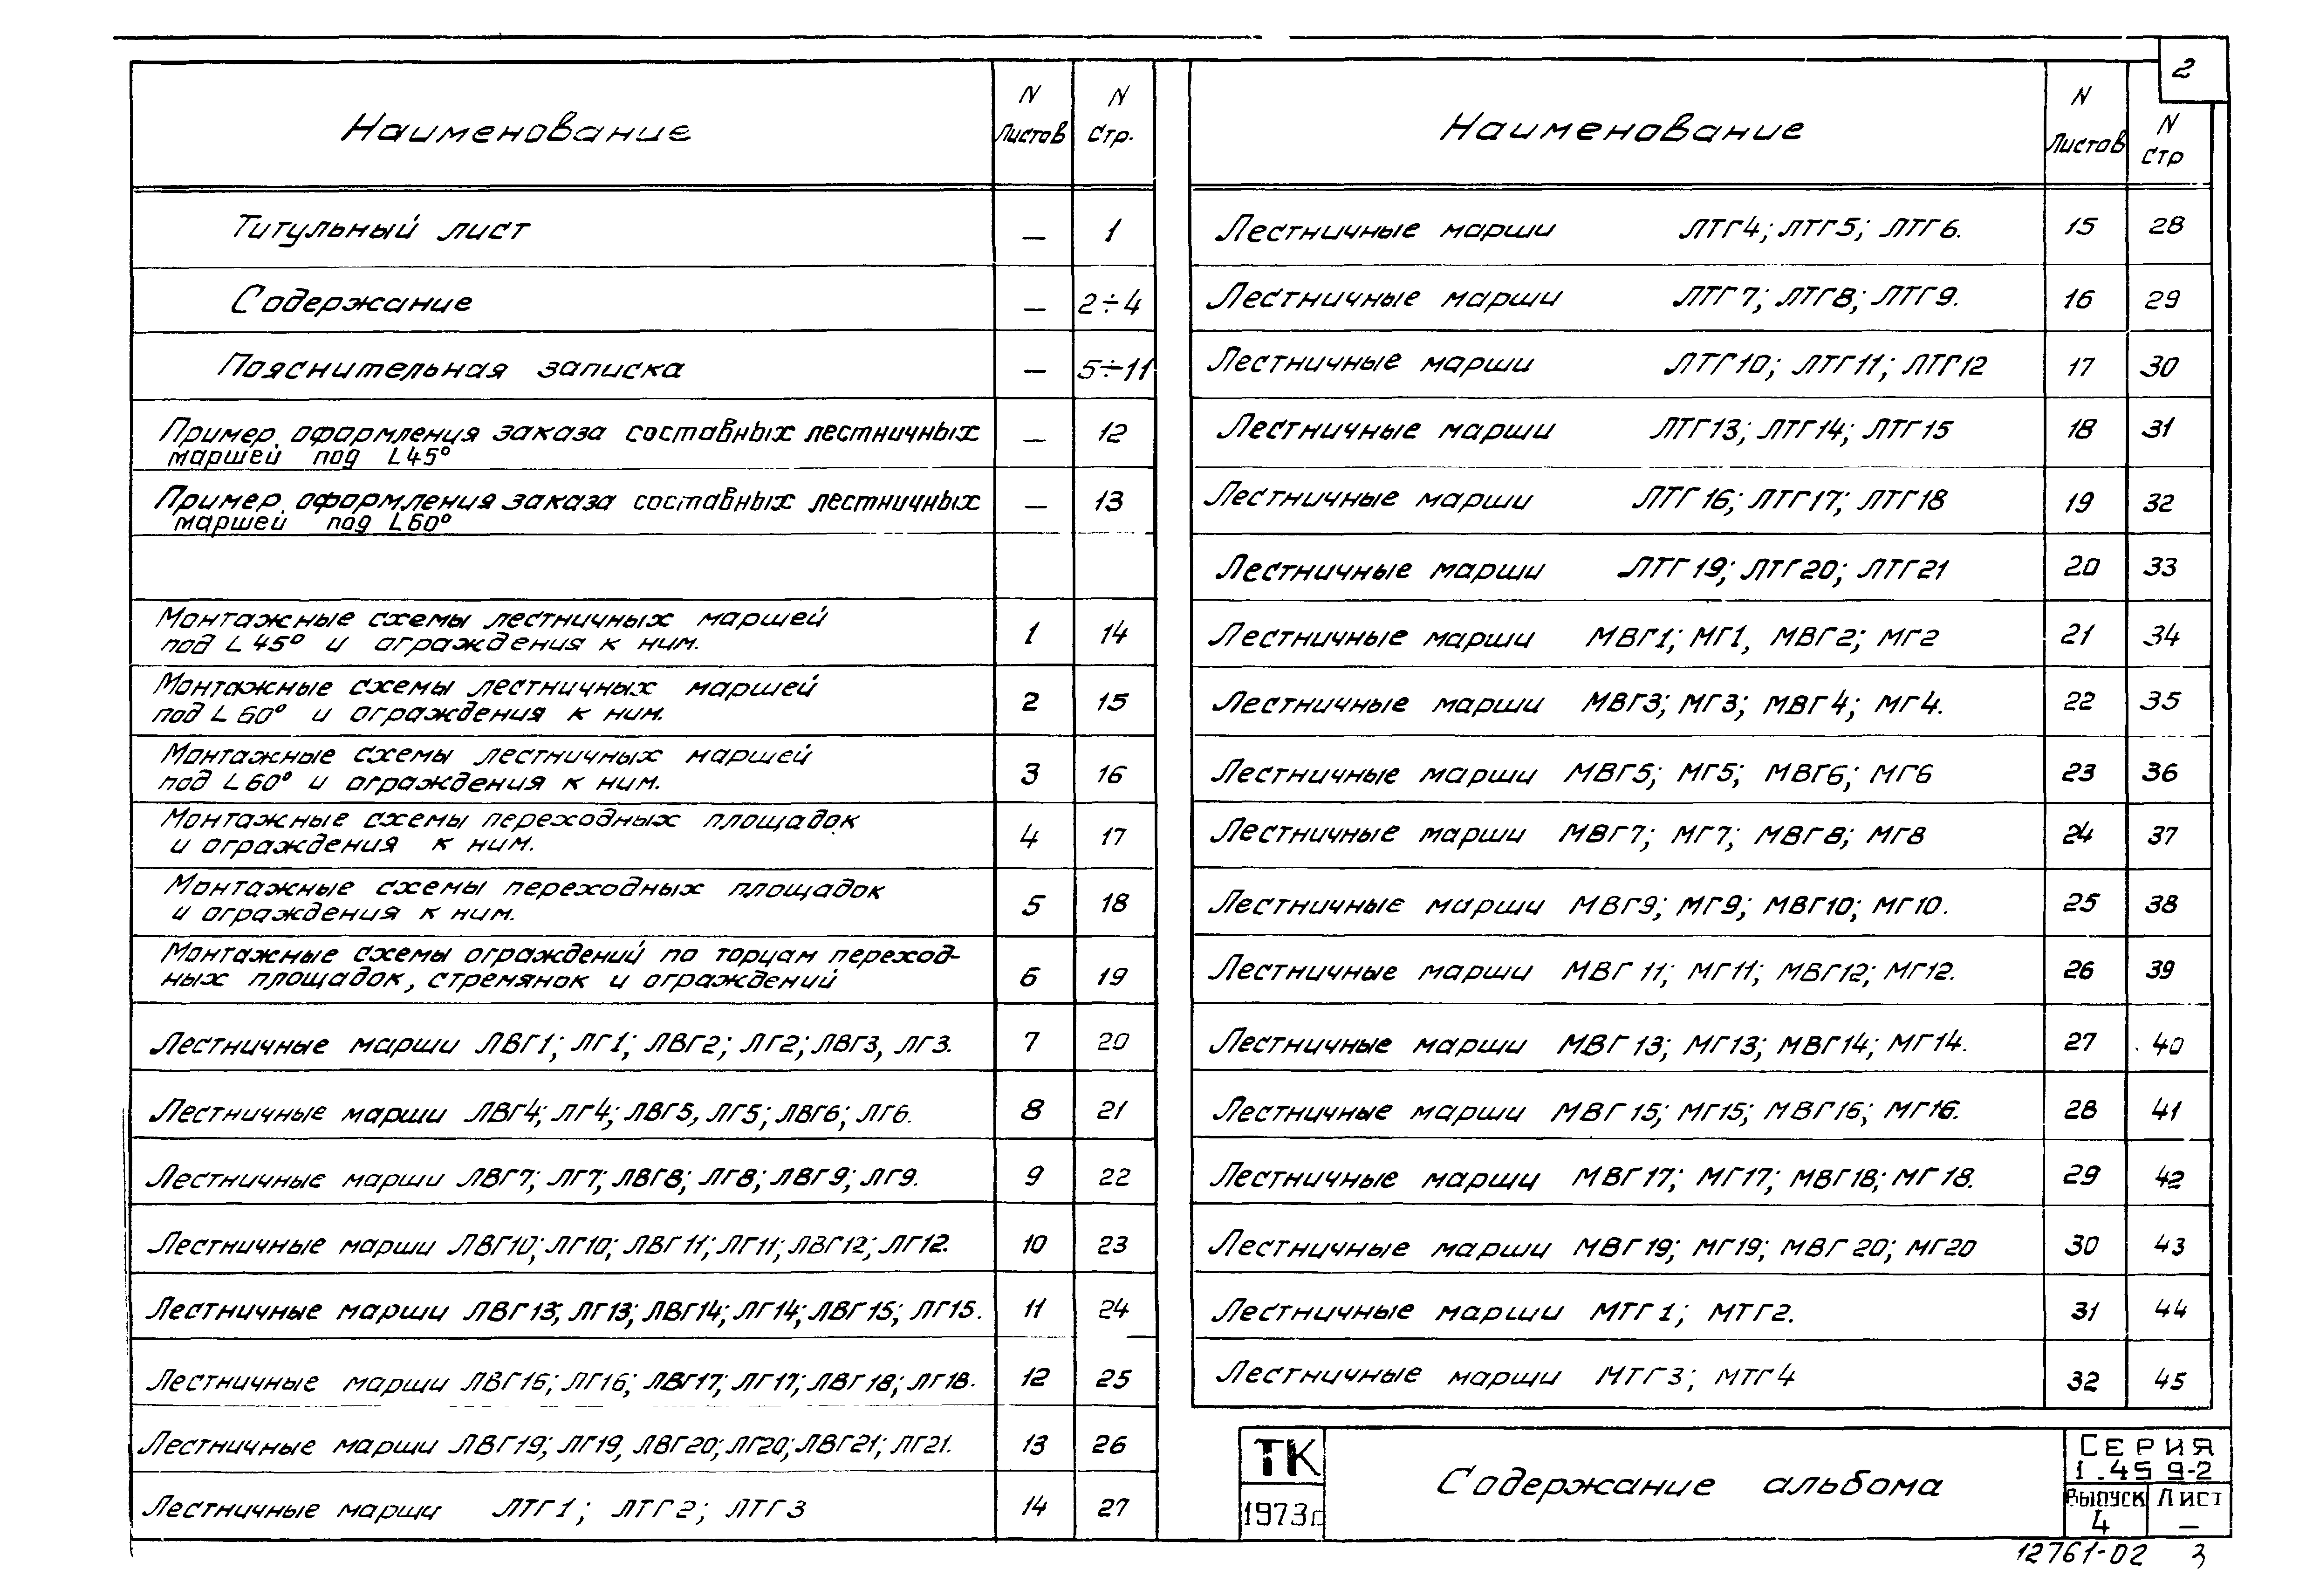 2
Наименование N Листов N стр.
Титульный лист — 1
Содержание — 2÷4
Пояснительная записка — 5÷11
Пример оформления заказа составных лестничных
маршей под L45° — 12
Пример оформления заказа составных лестничных
маршей под L60° — 13
Монтажные схемы лестничных маршей
под L 45° и ограждения к ним. 1 14
Монтажные схемы лестничных маршей
под L 60° и ограждения к ним. 2 15
Монтажные схемы лестничных маршей
под L 60° и ограждения к ним. 3 16
Монтажные схемы переходных площадок
и ограждения к ним. 4 17
Монтажные схемы переходных площадок
и ограждения к ним. 5 18
Монтажные схемы ограждений по торцам переход-
ных площадок, стремянок и ограждений 6 19
Лестничные марши ЛВГ1; ЛГ1; ЛВГ2; ЛГ2; ЛВГ3, ЛГ3. 7 20
Лестничные марши ЛВГ4; ЛГ4; ЛВГ5, ЛГ5; ЛВГ6; ЛГ6. 8 21
Лестничные марши ЛВГ7; ЛГ7; ЛВГ8; ЛГ8; ЛВГ9; ЛГ9. 9 22
Лестничные марши ЛВГ10; ЛГ10; ЛВГ11; ЛГ11; ЛВГ12; ЛГ12. 10 23
Лестничные марши ЛВГ13; ЛГ13; ЛВГ14; ЛГ14; ЛВГ15; ЛГ15. 11 24
Лестничные марши ЛВГ16; ЛГ16; ЛВГ17; ЛГ17; ЛВГ18; ЛГ18. 12 25
Лестничные марши ЛВГ19; ЛГ19, ЛВГ20; ЛГ20; ЛВГ21; ЛГ21. 13 26
Лестничные марши ЛТГ1; ЛТГ2; ЛТГ3 14 27
Наименование N Листов N стр
Лестничные марши ЛТГ4; ЛТГ5; ЛТГ6. 15 28
Лестничные марши ЛТГ7; ЛТГ8; ЛТГ9. 16 29
Лестничные марши ЛТГ10; ЛТГ11; ЛТГ12 17 30
Лестничные марши ЛТГ13; ЛТГ14; ЛТГ15 18 31
Лестничные марши ЛТГ16; ЛТГ17; ЛТГ18 19 32
Лестничные марши ЛТГ19; ЛТГ20; ЛТГ21 20 33
Лестничные марши МВГ1; МГ1, МВГ2; МГ2 21 34
Лестничные марши МВГ3; МГ3; МВГ4; МГ4. 22 35
Лестничные марши МВГ5; МГ5; МВГ6; МГ6 23 36
Лестничные марши МВГ7; МГ7; МВГ8; МГ8 24 37
Лестничные марши МВГ9; МГ9; МВГ10; МГ10. 25 38
Лестничные марши МВГ11; МГ11; МВГ12; МГ12. 26 39
Лестничные марши МВГ13; МГ13; МВГ14; МГ14. 27 40
Лестничные марши МВГ15; МГ15; МВГ16; МГ16. 28 41
Лестничные марши МВГ17; МГ17; МВГ18; МГ18. 29 42
Лестничные марши МВГ19; МГ19; МВГ20; МГ20 30 43
Лестничные марши МТГ1; МТГ2. 31 44
Лестничные марши МТГ3; МТГ4 32 45
ТК
1973г
Содержание альбома
СЕРИЯ
1.459-2
Выпуск Лист
4 —
12761-02 3